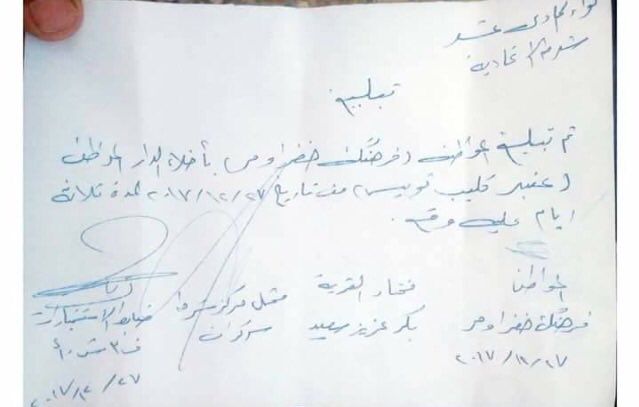 لواء الحادي عشر
شرطة اتحادية
تبليغ
تم تبليغ المواطن (فرهنك خضر اومر) بأخلاء الدار المواطن
(عنبر كليب تويس) من تاريخ ٢٠١٧/١٢/٢٧ لمدة ثلاثة
ايام علي وقع.
المواطن
فرهنك خضر اومر
٢٠١٧/١٢/٢٧
مختار القرية
بكر عزيز سعيد
ممثل مركز شرطة
سركران
ضابط الاستخبارات
ف٣ ش
٢٠١٧/١٢/٢٧